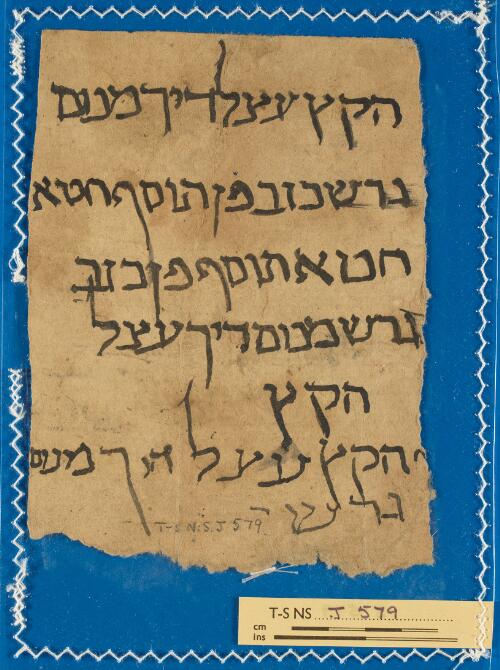 הקץ עצל דיך מנום
גרש כזב פן תוסף חטא
חטא תוסף פן כזב
גרש מנום דיך עצל
הקץ
הקץ עצל דיך מנום
גרש
T-S N.S. J 579
T-S NS J 579
cm
ins